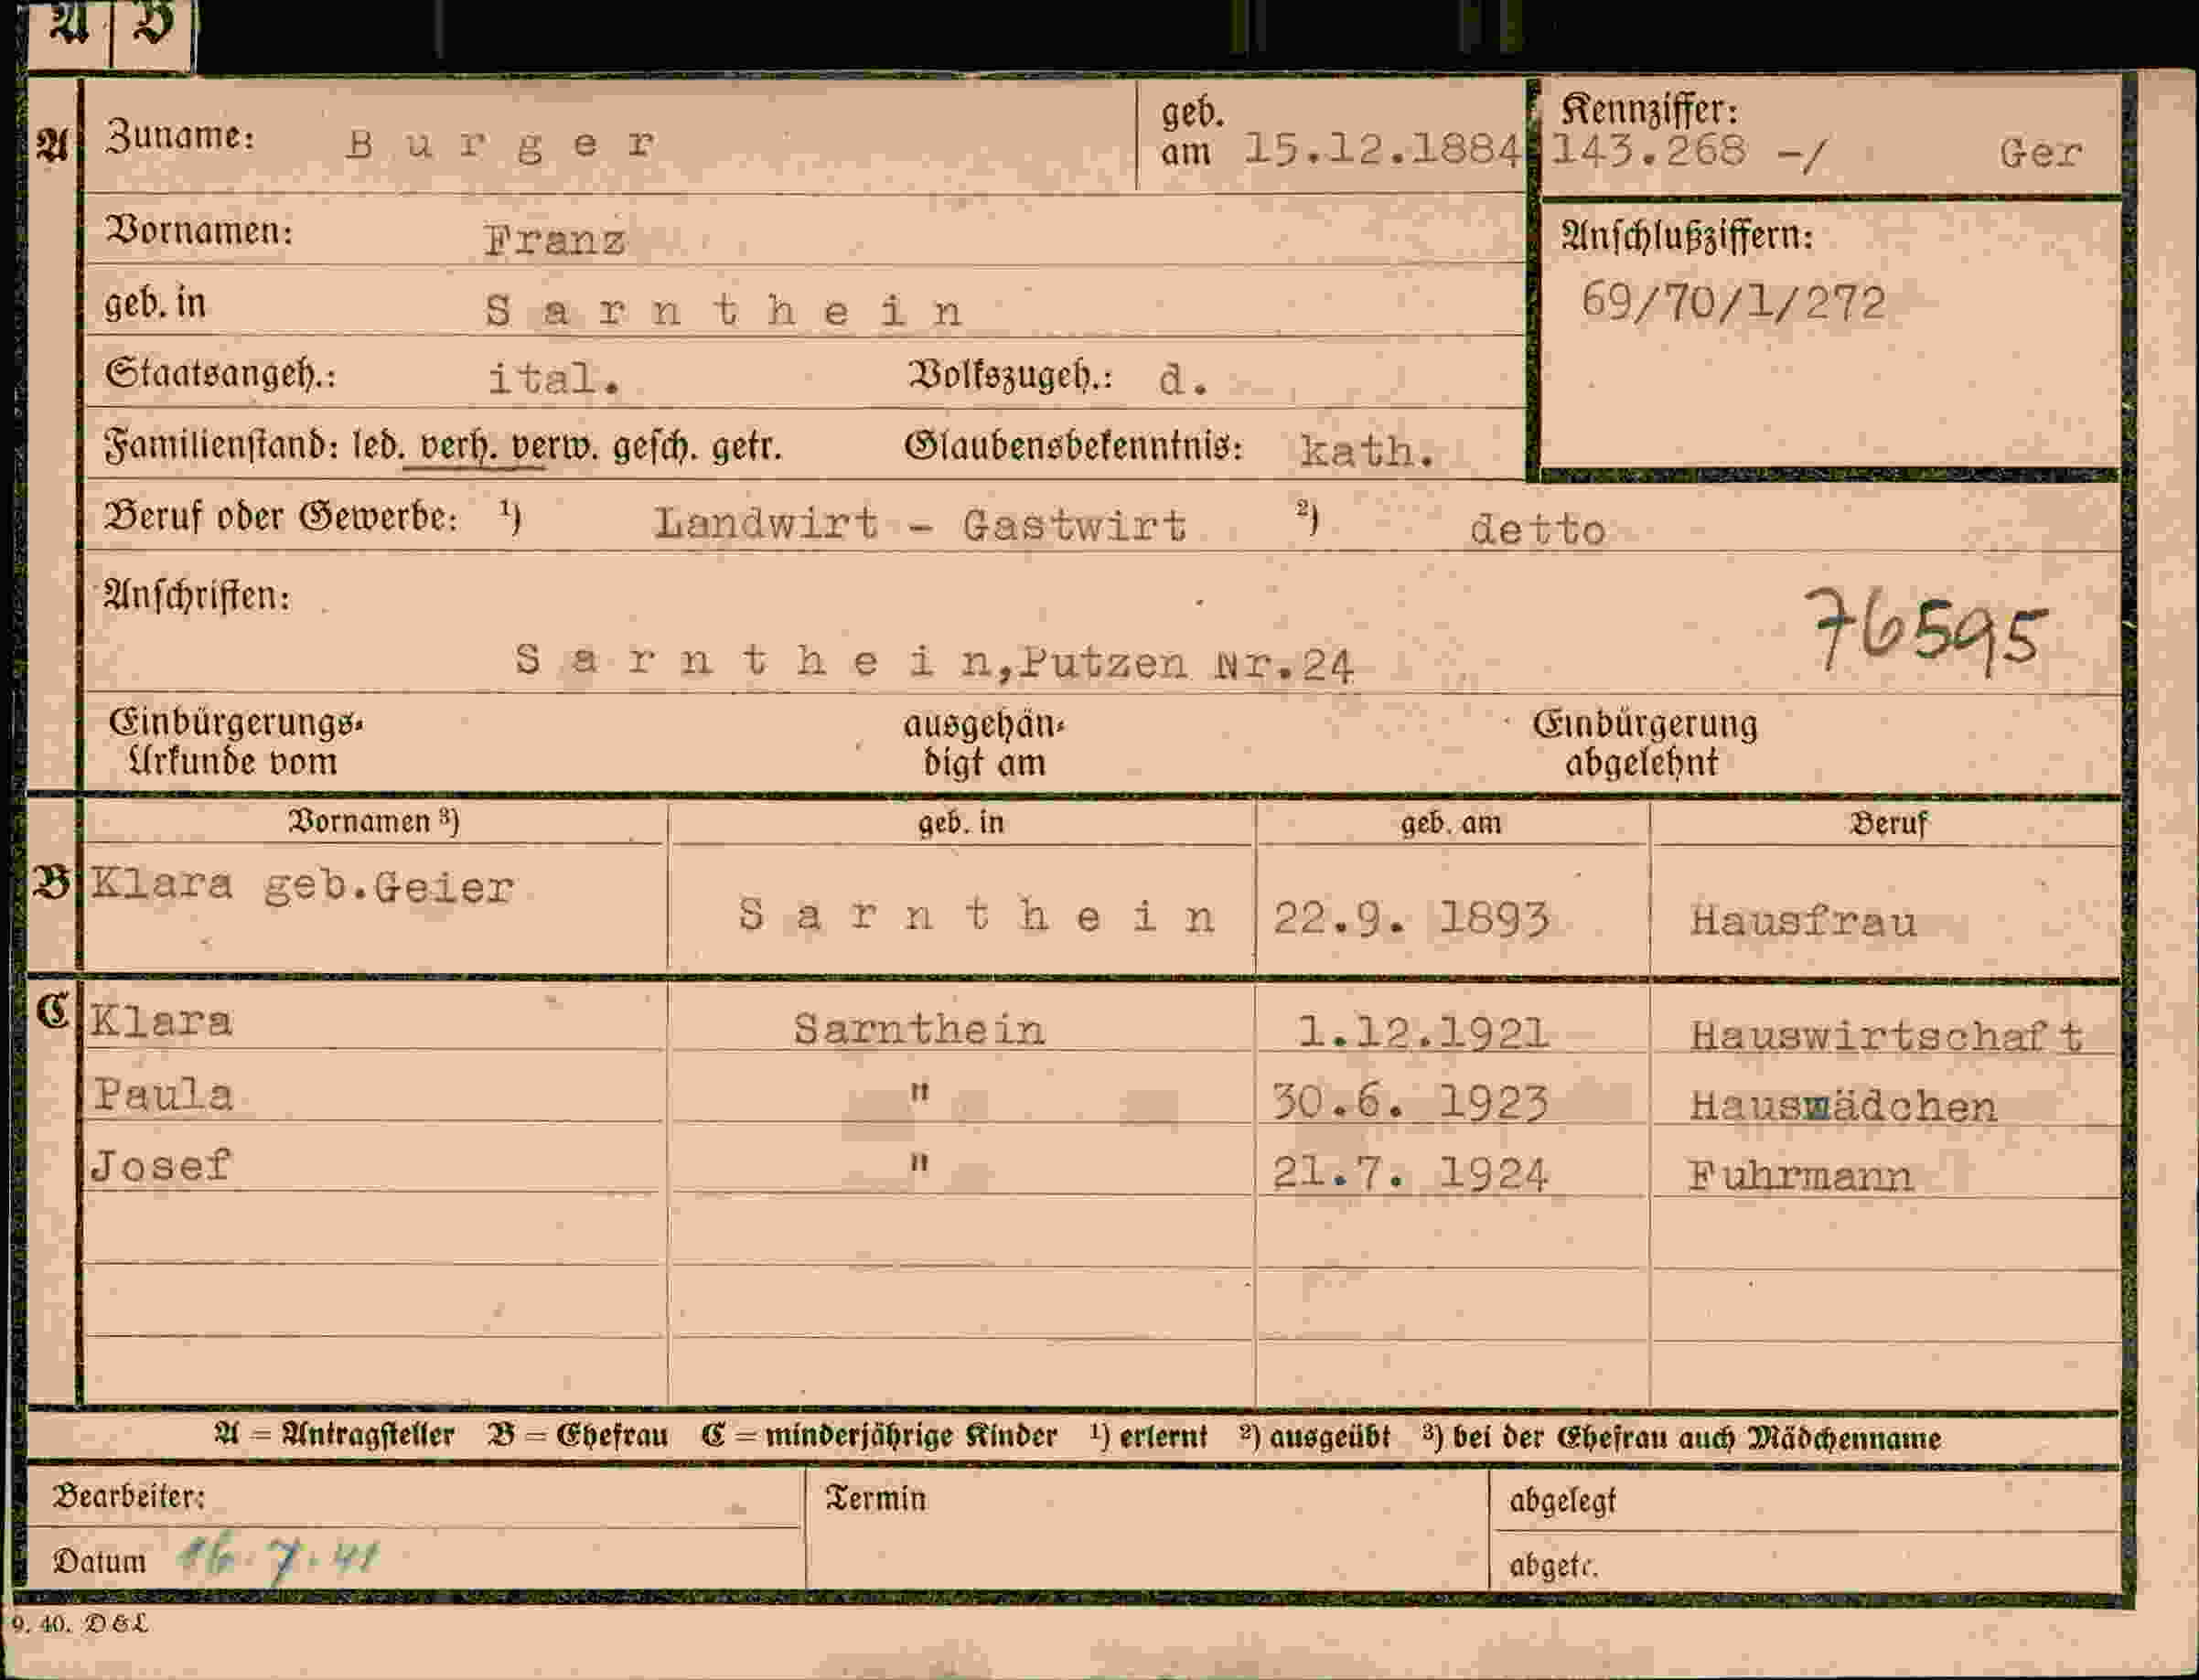 A B
A Zuname: Burger geb. am 15.12.1884 Kennziffer: 143.268 -/ Ger
Vornamen: Franz
Anschlußziffern:
geb. in Sarnthein 69/70/1/272
Staatsangeh.: ital. Volkszugeh.: d.
Familienstand: led. verh. verw. gesch. getr. Glaubensbekenntnis: kath.
Beruf oder Gewerbe: 1) Landwirt - Gastwirt 2) detto
Anschriften: 76595
Sarnthein,Putzen Nr.24
Einbürgerungs- ausgehän- Einbürgerung
Urkunde vom digt am abgelehnt
Vornamen 3) geb. in geb. am Beruf
B Klara geb.Geier Sarnthein 22.9. 1893 Hausfrau
C Klara Sarnthein 1.12.1921 Hauswirtschaft
Paula " 30.6. 1923 Hausmädchen
Josef " 21.7. 1924 Fuhrmann
A = Antragsteller B = Ehefrau C = minderjährige Kinder 1) erlernt 2) ausgeübt 3) bei der Ehefrau auch Mädchenname
Bearbeiter: Termin abgelegt
Datum 16.7.41 abgetr.
9. 40. D&L